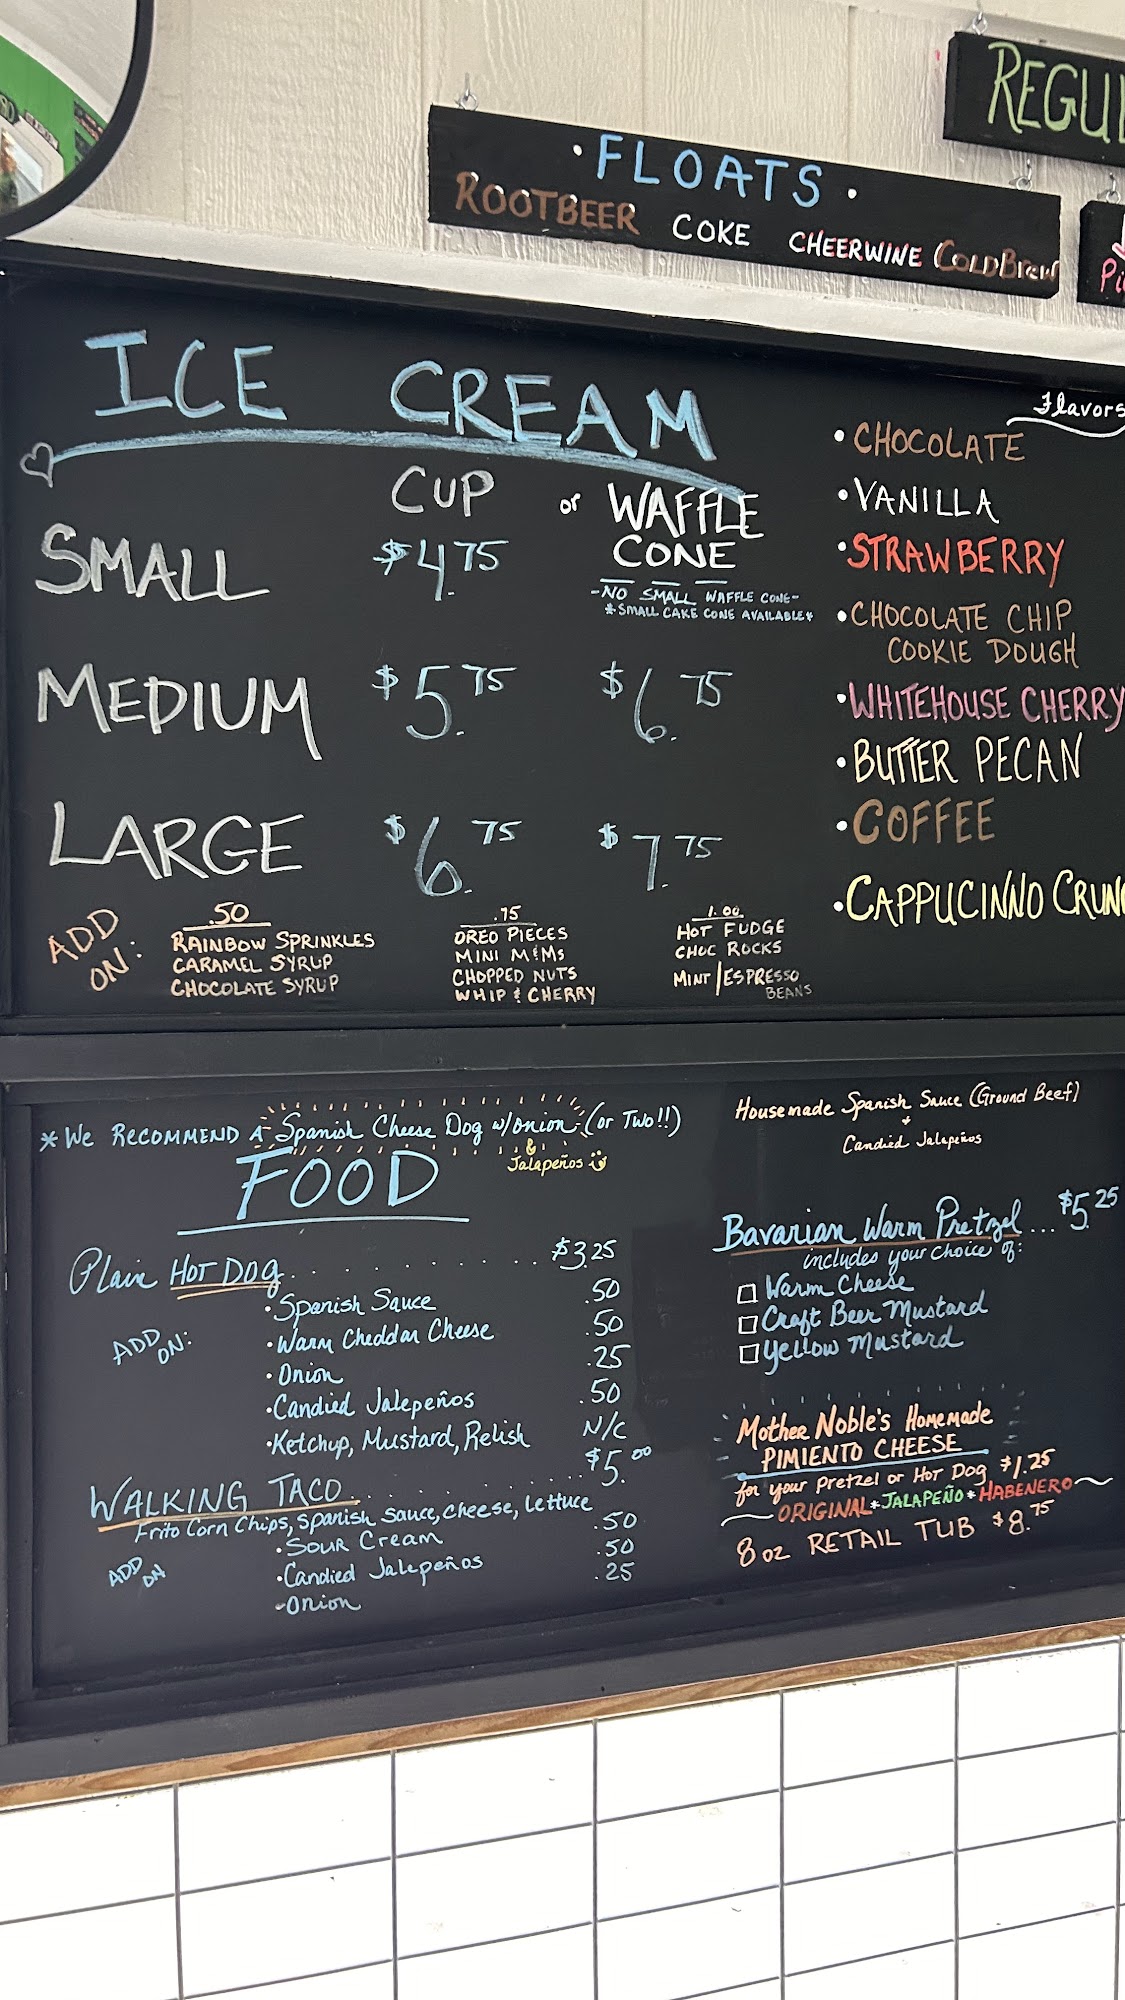 REGU
• FLOATS •
ROOTBEER COKE CHEERWINE COLDBREW
ICE CREAM
CUP or WAFFLE CONE
-NO SMALL WAFFLE CONE-
*SMALL CAKE CONE AVAILABLE*
SMALL $4.75
MEDIUM $5.75 $6.75
LARGE $6.75 $7.75
ADD ON:
.50
RAINBOW SPRINKLES
CARAMEL SYRUP
CHOCOLATE SYRUP
.75
OREO PIECES
MINI M&Ms
CHOPPED NUTS
WHIP & CHERRY
1.00
HOT FUDGE
CHOC ROCKS
MINT/ESPRESSO
BEANS
Flavors
• CHOCOLATE
• VANILLA
• STRAWBERRY
• CHOCOLATE CHIP
COOKIE DOUGH
• WHITEHOUSE CHERRY
• BUTTER PECAN
• COFFEE
• CAPPUCINNO CRUN
* We RECOMMEND A Spanish Cheese Dog w/onion (or Two!!)
& Jalapeños
FOOD
Plain HOT DOG . . . . . . . . . . $3.25
ADD ON:
• Spanish Sauce .50
• Warm Cheddar Cheese .50
• Onion .25
• Candied Jalepeños .50
• Ketchup, Mustard, Relish N/C
WALKING TACO . . . . . . . . . $5.00
Frito Corn Chips, Spanish sauce, cheese, lettuce
ADD ON
• SOUR CREAM .50
• Candied Jalepeños .50
- Onion .25
Housemade Spanish Sauce (Ground Beef)
+
Candied Jalapeños
Bavarian Warm Pretzel ... $5.25
includes your choice of:
Warm Cheese
Craft Beer Mustard
Yellow Mustard
Mother Noble's Homemade
PIMIENTO CHEESE
for your Pretzel or Hot Dog $1.25
ORIGINAL * JALAPEÑO * HABENERO
8 oz RETAIL TUB $8.75